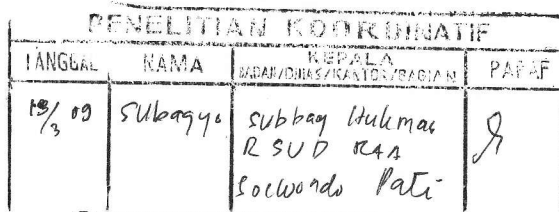 PENELITIAN KOORDINATIF
TANGGAL NAMA KEPALA BADAN/DINAS/KANTOR/BAGIAN PARAF
19/3 09 Subagyo Subbag Hukmas
RSUD RAA
Soewondo Pati